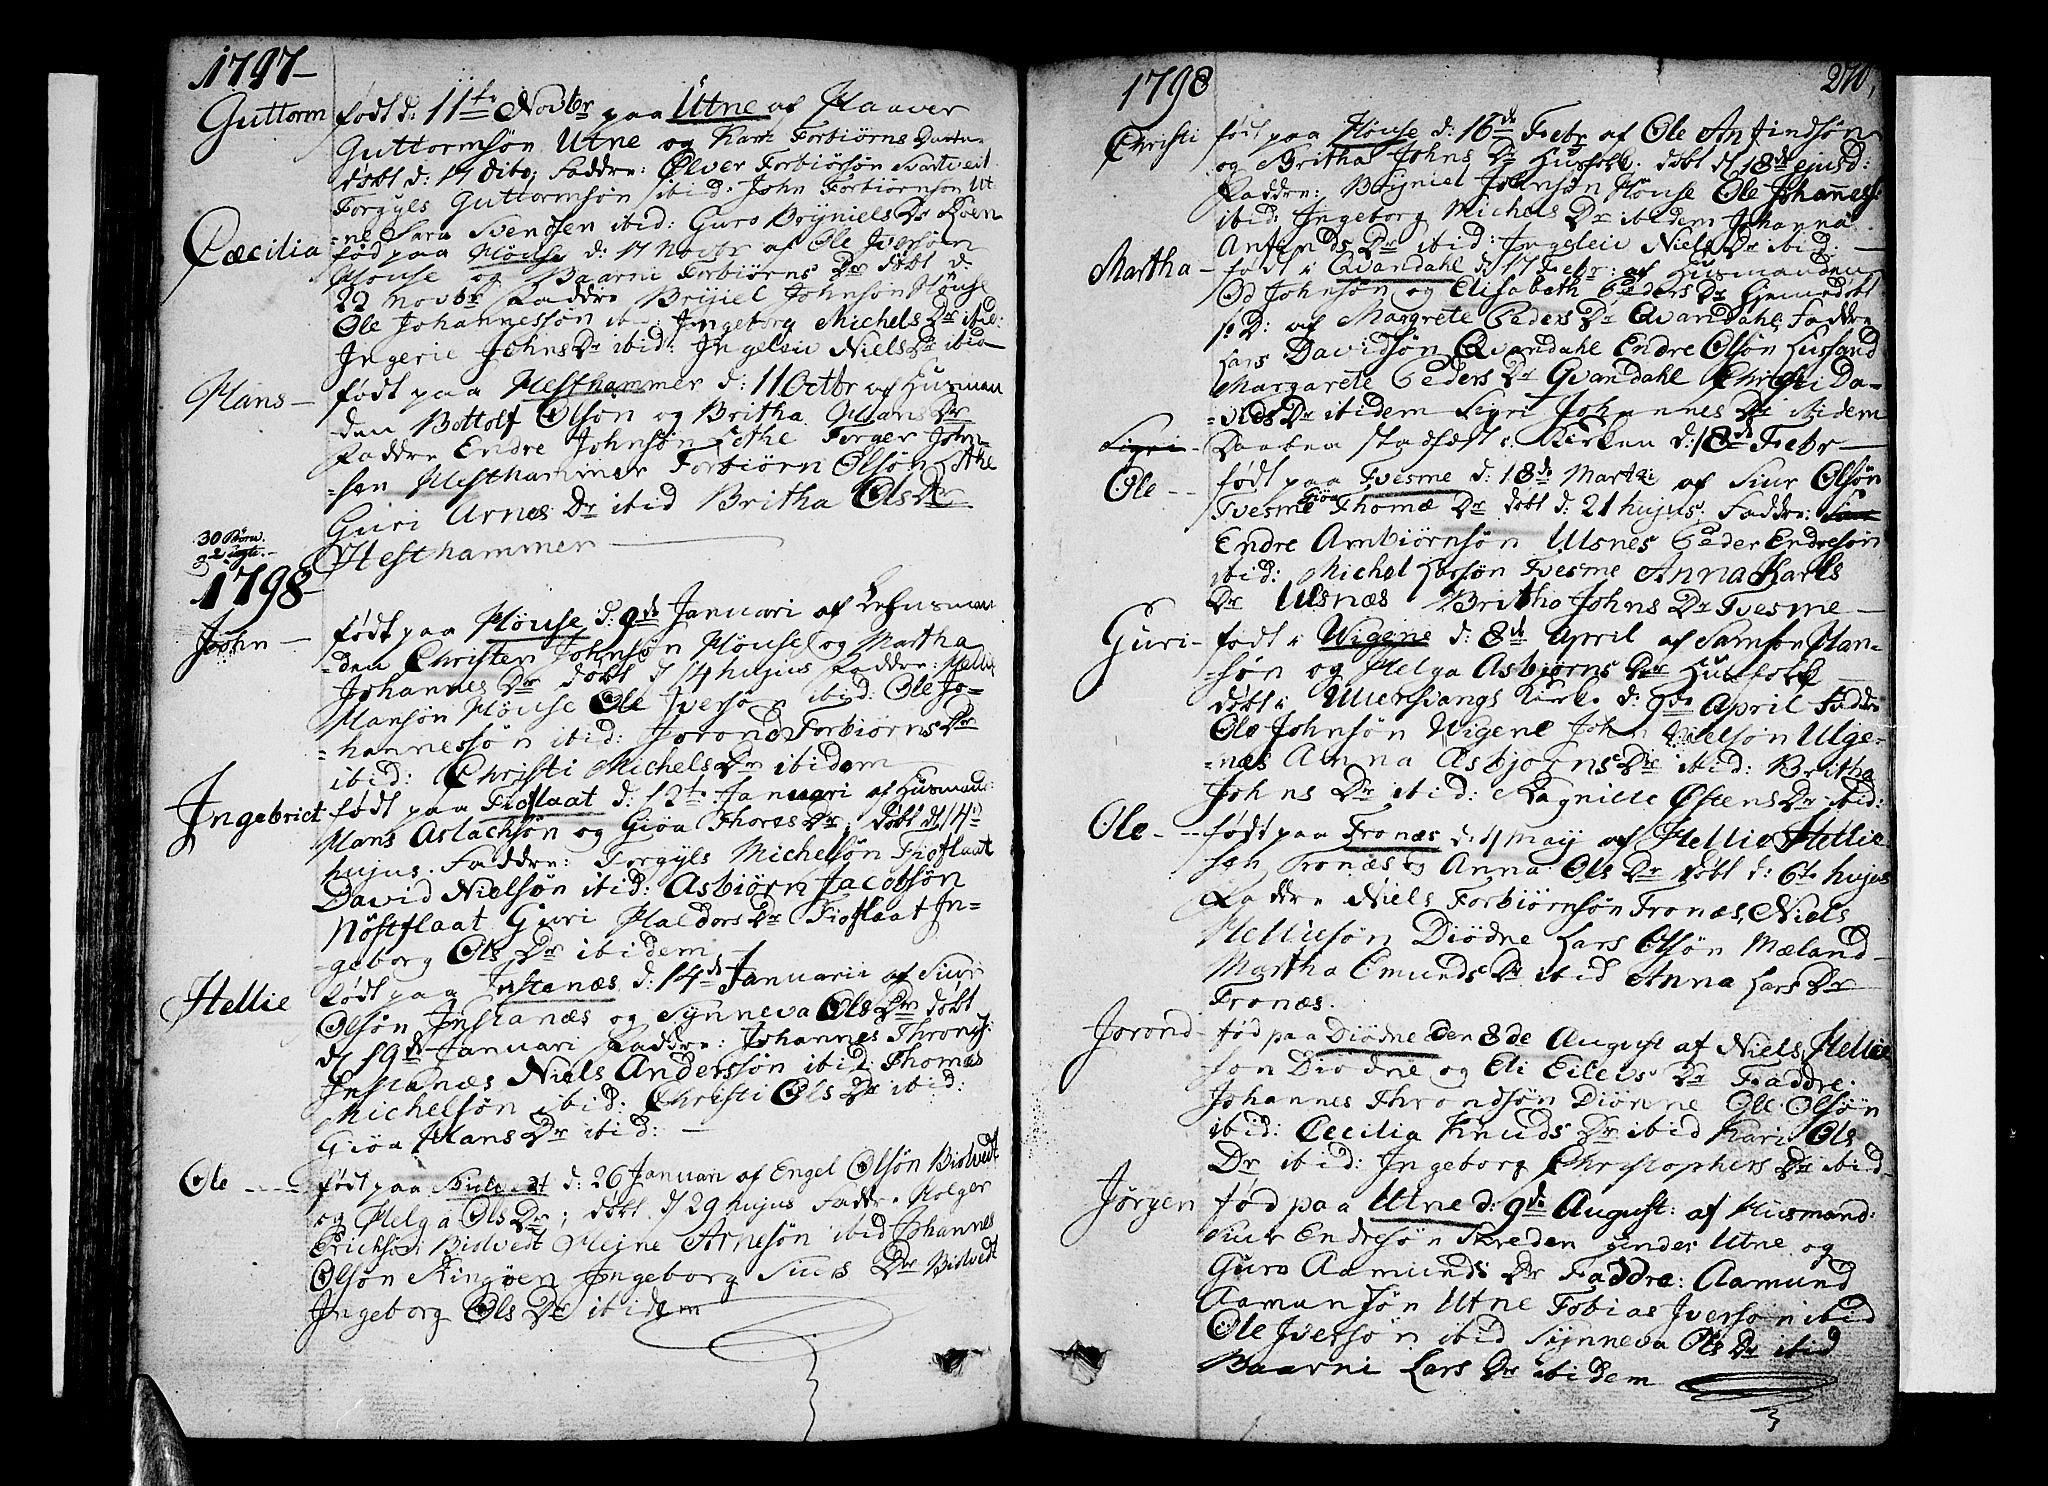 1797
Guttorm født d: 11te Novbr paa Utne af Haaver
Guttormsøn Utne og Kari Torbiørns Datter
døbt d: 17 dito; Faddre: Ølver Torbiørsøn Svartveit
Torgyls Guttormsøn ibid: John Torbiørnsøn Ut-
=ne Sara Svendsen ibid: Guro Brÿniels Dr
Cæcilia fød paa Høuse d: 17 Novbr af Ole Iversøn
Høuse og Baarni Torbiørns Dr døbt d:
22 Novbr Faddre Brÿniel Johnsøn Høuse
Ole Johannessøn ibid: Ingeborg Michels Dr ibid:
Ingerie Johns Dr ibid: Ingeleiv Niels Dr ibid
Hans – født paa Hesthammer d: 11 Octbr af Husman
=den Bottolf Olsøn og Britha Hans Dr
Faddre Endre Johnsøn Lothe Torger John-
=sen Hesthammer Torbiørn Olsøn Lothe
Guri Arnes Dr ibid Britha Ols Dr
Hesthammer
30 Børn.
1798
John – født paa Høuse d: 9de Januari af Lehnsman
=den Christen Johnsøn Høuse og Martha
Johannes Dr døbt d 14 hujus Faddre: Hellie
Hansøn Høuse Ole Iversøn ibid: Ole Jo-
=hannessøn ibid: Jorond Torbiørns Dr
ibid: Christi Michels Dr ibidem
Ingebrict født paa Tioflaat d: 12te Januari af Husmand:
Hans Aslachsøn og Giøa Thores Dr; døbt d: 14de
hujus. Faddre: Torgyls Michelsøn Tioflaat
David Nielsøn ibid: Asbiørn Jacobsøn
Nøstflaat Guri Haldors Dr Tioflaat In-
geborg Ols Dr ibidem
Hellie født paa Instanæs d: 14de Januarii af Siur
Olsøn Instanæs og Sÿnneva Ols Dr døbt
d 19de Januari Faddre: Johannes Thronds:
Instanæs Niels Anderssøn ibid: Thomas
Michelsøn ibid: Christi Ols Dr ibid:
Giøa Hans Dr ibid: –
Ole født paa Bidvedt d: 26 Januari af Engel Olsøn Bidvedt
og Helga Ols Dr; døbt d 29 hujus Faddre Holger
Erichsøn Bidvedt Heine Arnesøn ibid Johannes
Olsøn Ringøen Ingeborg Siurs Dr Bidvedt
Ingeborg Ols Dr ibidem
1798
270,
Christi født paa Høuse d: 16de Febr af Ole Anfindsøn
og Britha Johns Dr Husfolk. døbt d 18de ejusd:
Faddre: Brÿniel Johnsøn Høuse Ole Johanness:
ibid: Ingeborg Michels Dr ibidem Johanna
Anfinds Dr ibid: Ingeleiv Niels Dr ibid:
Martha – født i Qvandahl d 17 Febr: af Husmanden
Od Johnsøn og Elisabeth Peders Dr hjemedøbt
s: D: af Margrete Peders Dr Qvandahl; Faddre
Lars Davidsøn Qvandahl Endre Olsøn Hussand
Margarete Peders Dr Qvandahl Christi Da-
=vids Dr ibidem Sigri Johannes Dr ibidem
Sigri – Daaben stadfæst i Kirken d: 18de Febr
Ole – – født paa Tvesme d: 18de Marti: af Siur Olsøn
Tvesme Giøa Thomæ Dr døbt d: 21 hujus; Faddre:
Endre Ambiørnsøn Ulsnes Peder Endresøn
ibid: Michel Larsøn Tvesme Anna Karls
Dr Ulsnæs Britha Johns Dr Tvesme
Guri – født i Wigene d: 8de April af Samson Han-
=søn og Helga Asbjørns Dr Husfolk
døbt i Ullensvangs Kirke d: 9de April Faddre
Ole Johnsøn Wigene John Nielsøn Ulge-
=næs Anna Asbjørns Dr ibid: Britha
Johns Dr ibid: Ragnille Østens Dr ibid:
Ole – – født paa Tronæs d: 4 May af Hellie Hellie
sen Tronæs og Anna Ols Dr døbt d: 6te hujus
Faddre Niels Torbiørnsøn Tronæs, Niels
Helliesøn Diødne Lars Olsøn Mæland
Martha Omunds Dr ibid Anna Lars Dr
Tronæs.
Jorond – fød paa Diødne den 8de August af Niels Hellie
son Diødne og Eli Eilevs Dr Faddre.
Johannes Throndsøn Diønne Ole Olsøn
ibid: Cecilia Knuds Dr ibid Kari Ols
Dr ibid: Ingeborg Christophers Dr ibid
Jørgen fød paa Utne d: 9de August: af Husmand:
Siur Endresøn Skreden under Utne og
Guro Aamunds Dr Faddre: Aamund
Aamunsøn Utne Tobias Iversøn ibid
Ole Iversøn ibid Sÿnneva Ols Dr ibid
Baarni Lars Dr ibidem